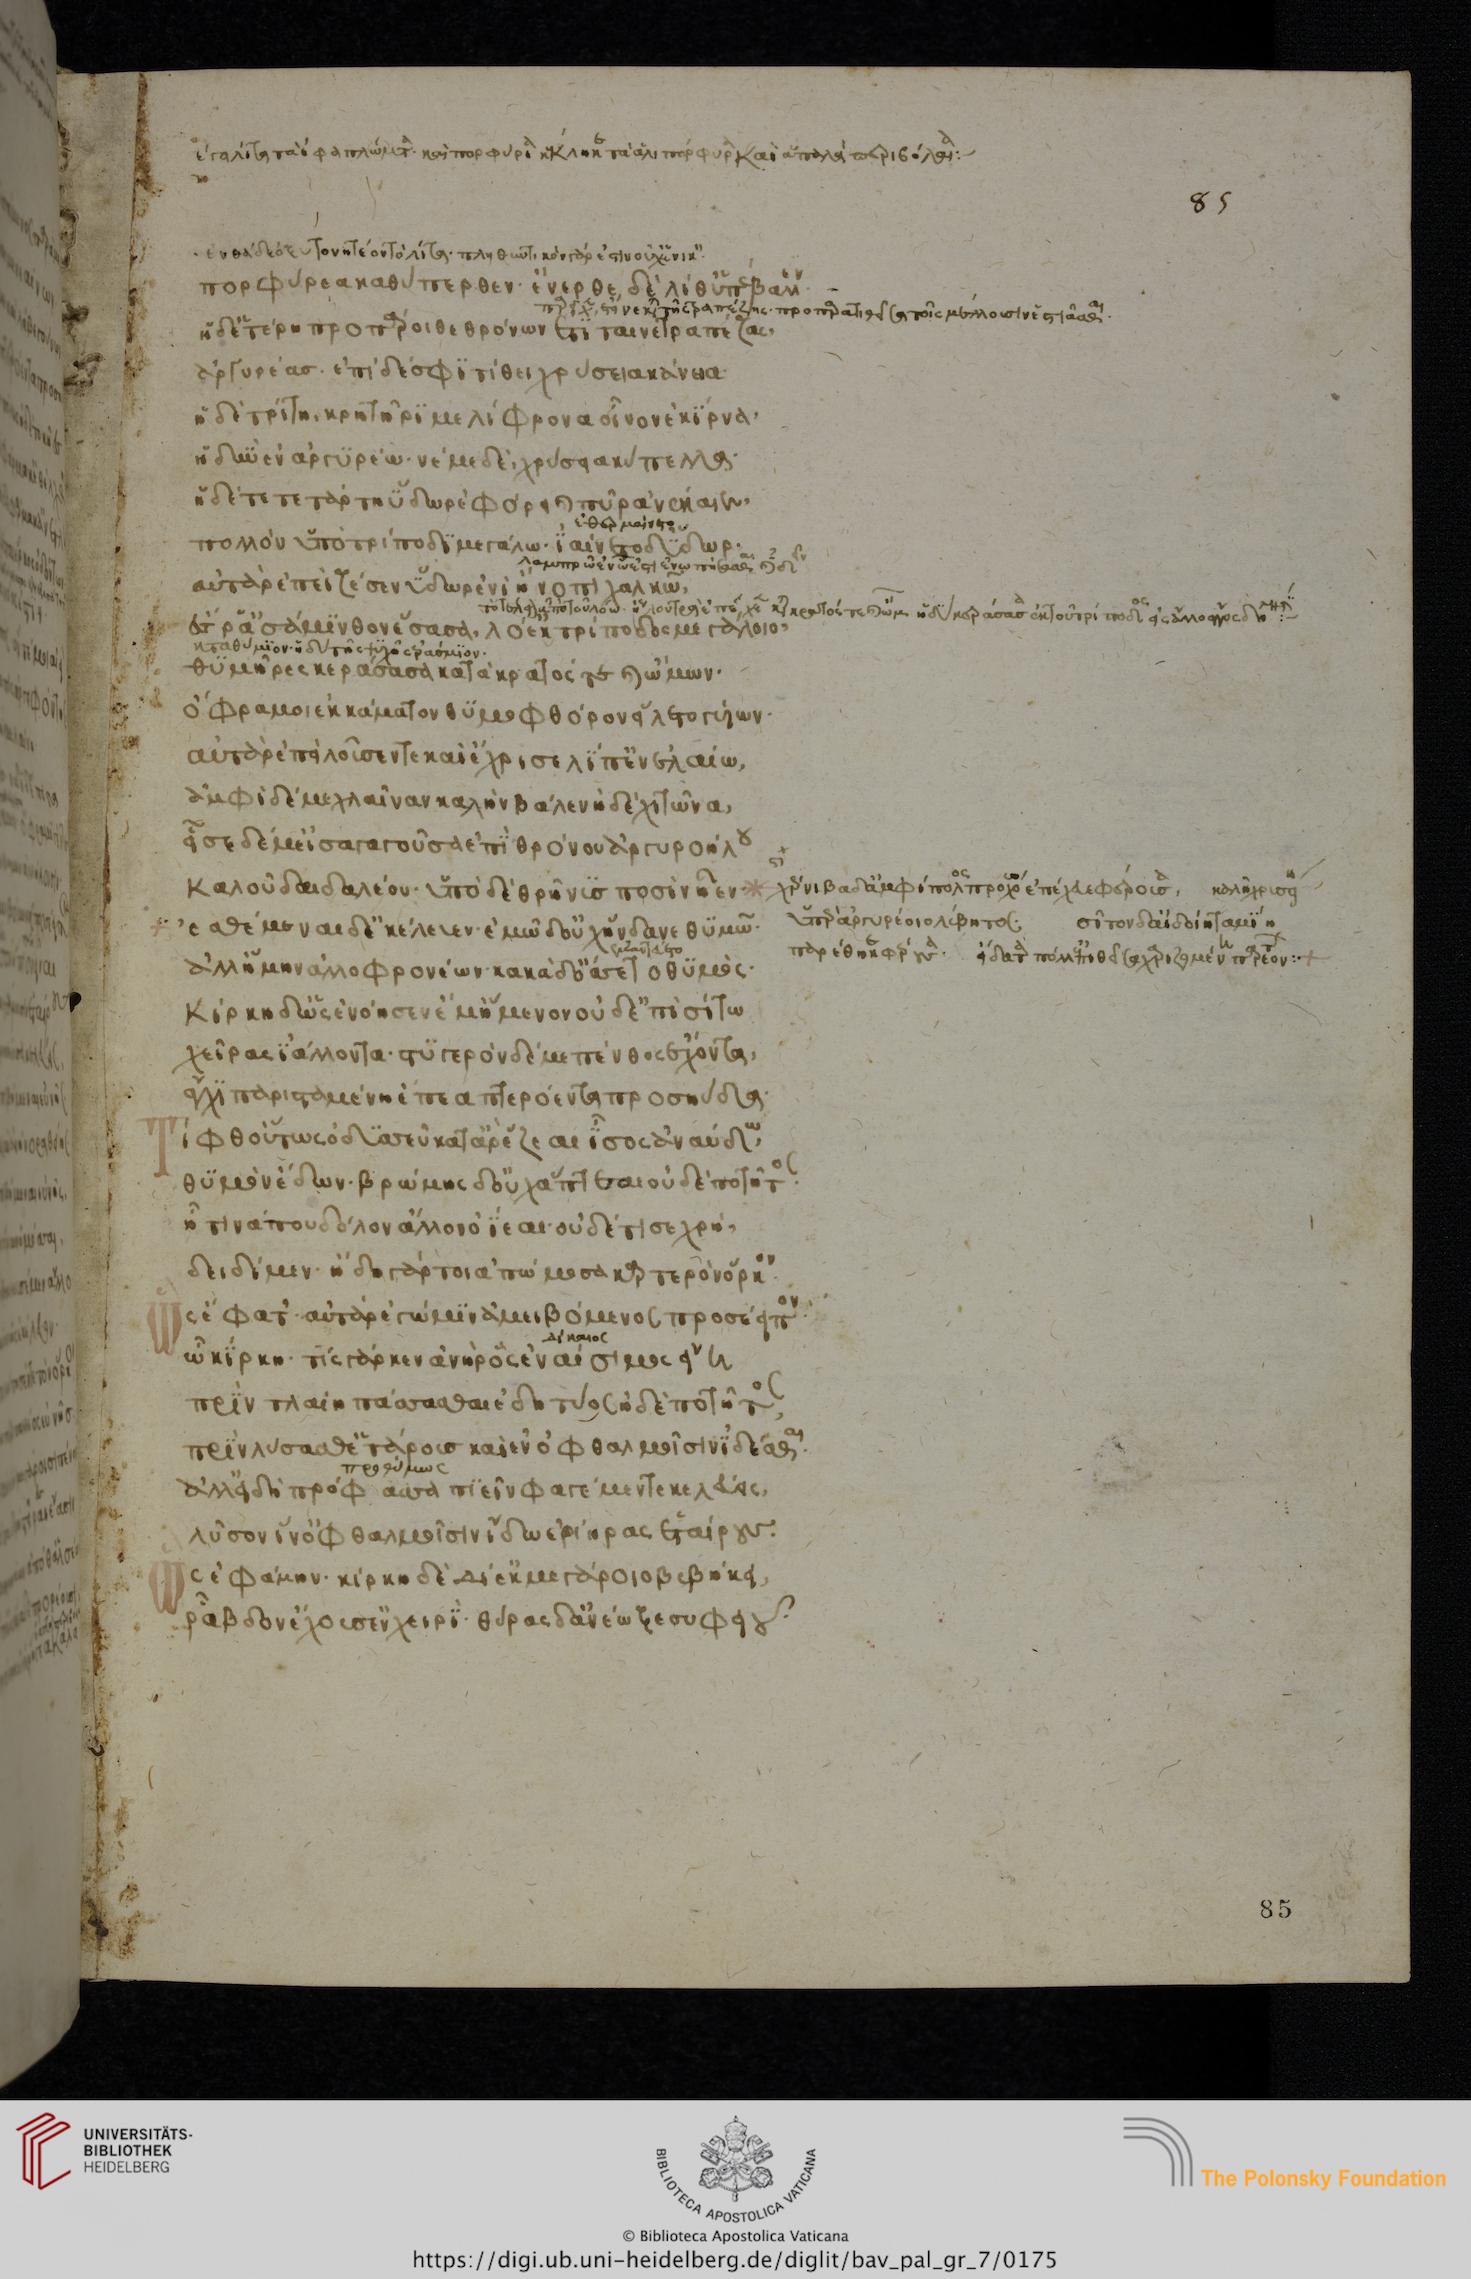 85
πορφύρεα καθύπερθεν· ἔνερθε δὲ λῖθ' ὑπέβαλλεν·
ἡ δ' ἑτέρη προπάροιθε θρόνων ἐτίταινε τραπέζας,
ἀργυρέας· ἐπὶ δέ σφι τίθει χρύσεια κάνεια·
ἡ δὲ τρίτη κρητῆρι μελίφρονα οἶνον ἐκίρνα,
ἡδὺν ἐν ἀργυρέω· νέμε δὲ χρύσεια κύπελλα·
ἡ δὲ τετάρτη ὕδωρ ἐφόρει καὶ πῦρ ἀνέκαιεν,
ἐθερμαίνετο
πολλὸν ὑπὸ τρίποδι μεγάλω· ἰαίνετο δ' ὕδωρ·
αὐτὰρ ἐπεὶ ζέσεν ὕδωρ ἐνὶ ἤνοπι χαλκῶ,
ἔς ῥ' ἀσάμινθον ἕσασα, λό' ἐκ τρίποδος μεγάλοιο,
θυμῆρες κεράσασα κατὰ κρατός τε καὶ ὤμων·
ὄφρα μοι ἐκ κάματον θυμοφθόρον εἵλετο γυίων·
αὐτὰρ ἐπεὶ λοῦσέν τε καὶ ἔχρισε λίπ' ἐν ἐλαίω,
ἀμφὶ δέ με χλαῖναν καλὴν βάλεν ἠδὲ χιτῶνα,
εἷσε δέ μ' εἰσαγαγοῦσα ἐπὶ θρόνου ἀργυροήλου
καλοῦ δαιδαλέου· ὑπὸ δὲ θρῆνυς ποσὶν ἦεν· χέρνιβα δ' ἀμφίπολος προχόω ἐπέχευε φέρουσα, καλῆ χρυσείη
ὑπὲρ ἀργυρέοιο λέβητος σῖτον δ' αἰδοίη ταμίη
παρέθηκε φέρουσα· εἴδατα πόλλ' ἐπιθεῖσα χαριζομένη παρεόντων
ἐσθέμεναι δ' ἐκέλευεν· ἐμῶ δ' οὐχ ἥνδανε θυμῶ·
ἀλλ' ἥμην ἀλλοφρονέων· κακὰ δ' ὄσσετο θυμός·
Κίρκη δ' ὡς ἐνόησεν ἔμ' ἥμενον οὐδ' ἐπὶ σίτω
χεῖρας ἰάλλοντα· στυγερὸν δέ με πένθος ἔχοντα,
ἄγχι παρισταμένη ἔπεα πτερόεντα προσηύδα·
Τίφθ' οὕτως ὀδυσεῦ κατ' ἄρ' ἕζεαι ἶσος ἀναύδω,
θυμὸν ἔδων· βρώμης δ' οὐχ ἅπτεαι οὐδὲ ποτῆτος·
ἦ τινά που δόλον ἄλλον ὀίεαι· οὐδέ τί σε χρὴ,
δειδίμεν· ἤδη γάρ τοι ἀπώμοσα καρτερὸν ὅρκον·
Ὣς ἔφατ'· αὐτὰρ ἐγώ μιν ἀμειβόμενος προσέειπον·
δίκαιος
ὦ κίρκη· τίς γάρ κεν ἀνὴρ ὃς ἐναίσιμος εἴη
πρὶν τλαίη πάσσασθαι ἐδητύος ἠδὲ ποτῆτος,
πρὶν λύσασθ' ἑτάρους καὶ ἐν ὀφθαλμοῖσιν ἰδέσθαι·
προθύμως
ἀλλ' εἰ δὴ πρόφρασσα πιεῖν φαγέμεν τε κελεύεις,
λῦσον ἵν' ὀφθαλμοῖσιν ἴδω ἐρίηρας ἑταίρους·
Ὣς ἐφάμην· κίρκη δὲ διὲκ μεγάροιο βεβήκει,
ῥάβδον ἔχουσ' ἐν χειρί· θύρας δ' ἀνέωξε συφειοῦ·
85
UNIVERSITÄTS-
BIBLIOTHEK
HEIDELBERG
BIBLIOTECA APOSTOLICA VATICANA
The Polonsky Foundation
© Biblioteca Apostolica Vaticana
https://digi.ub.uni-heidelberg.de/diglit/bav_pal_gr_7/0175